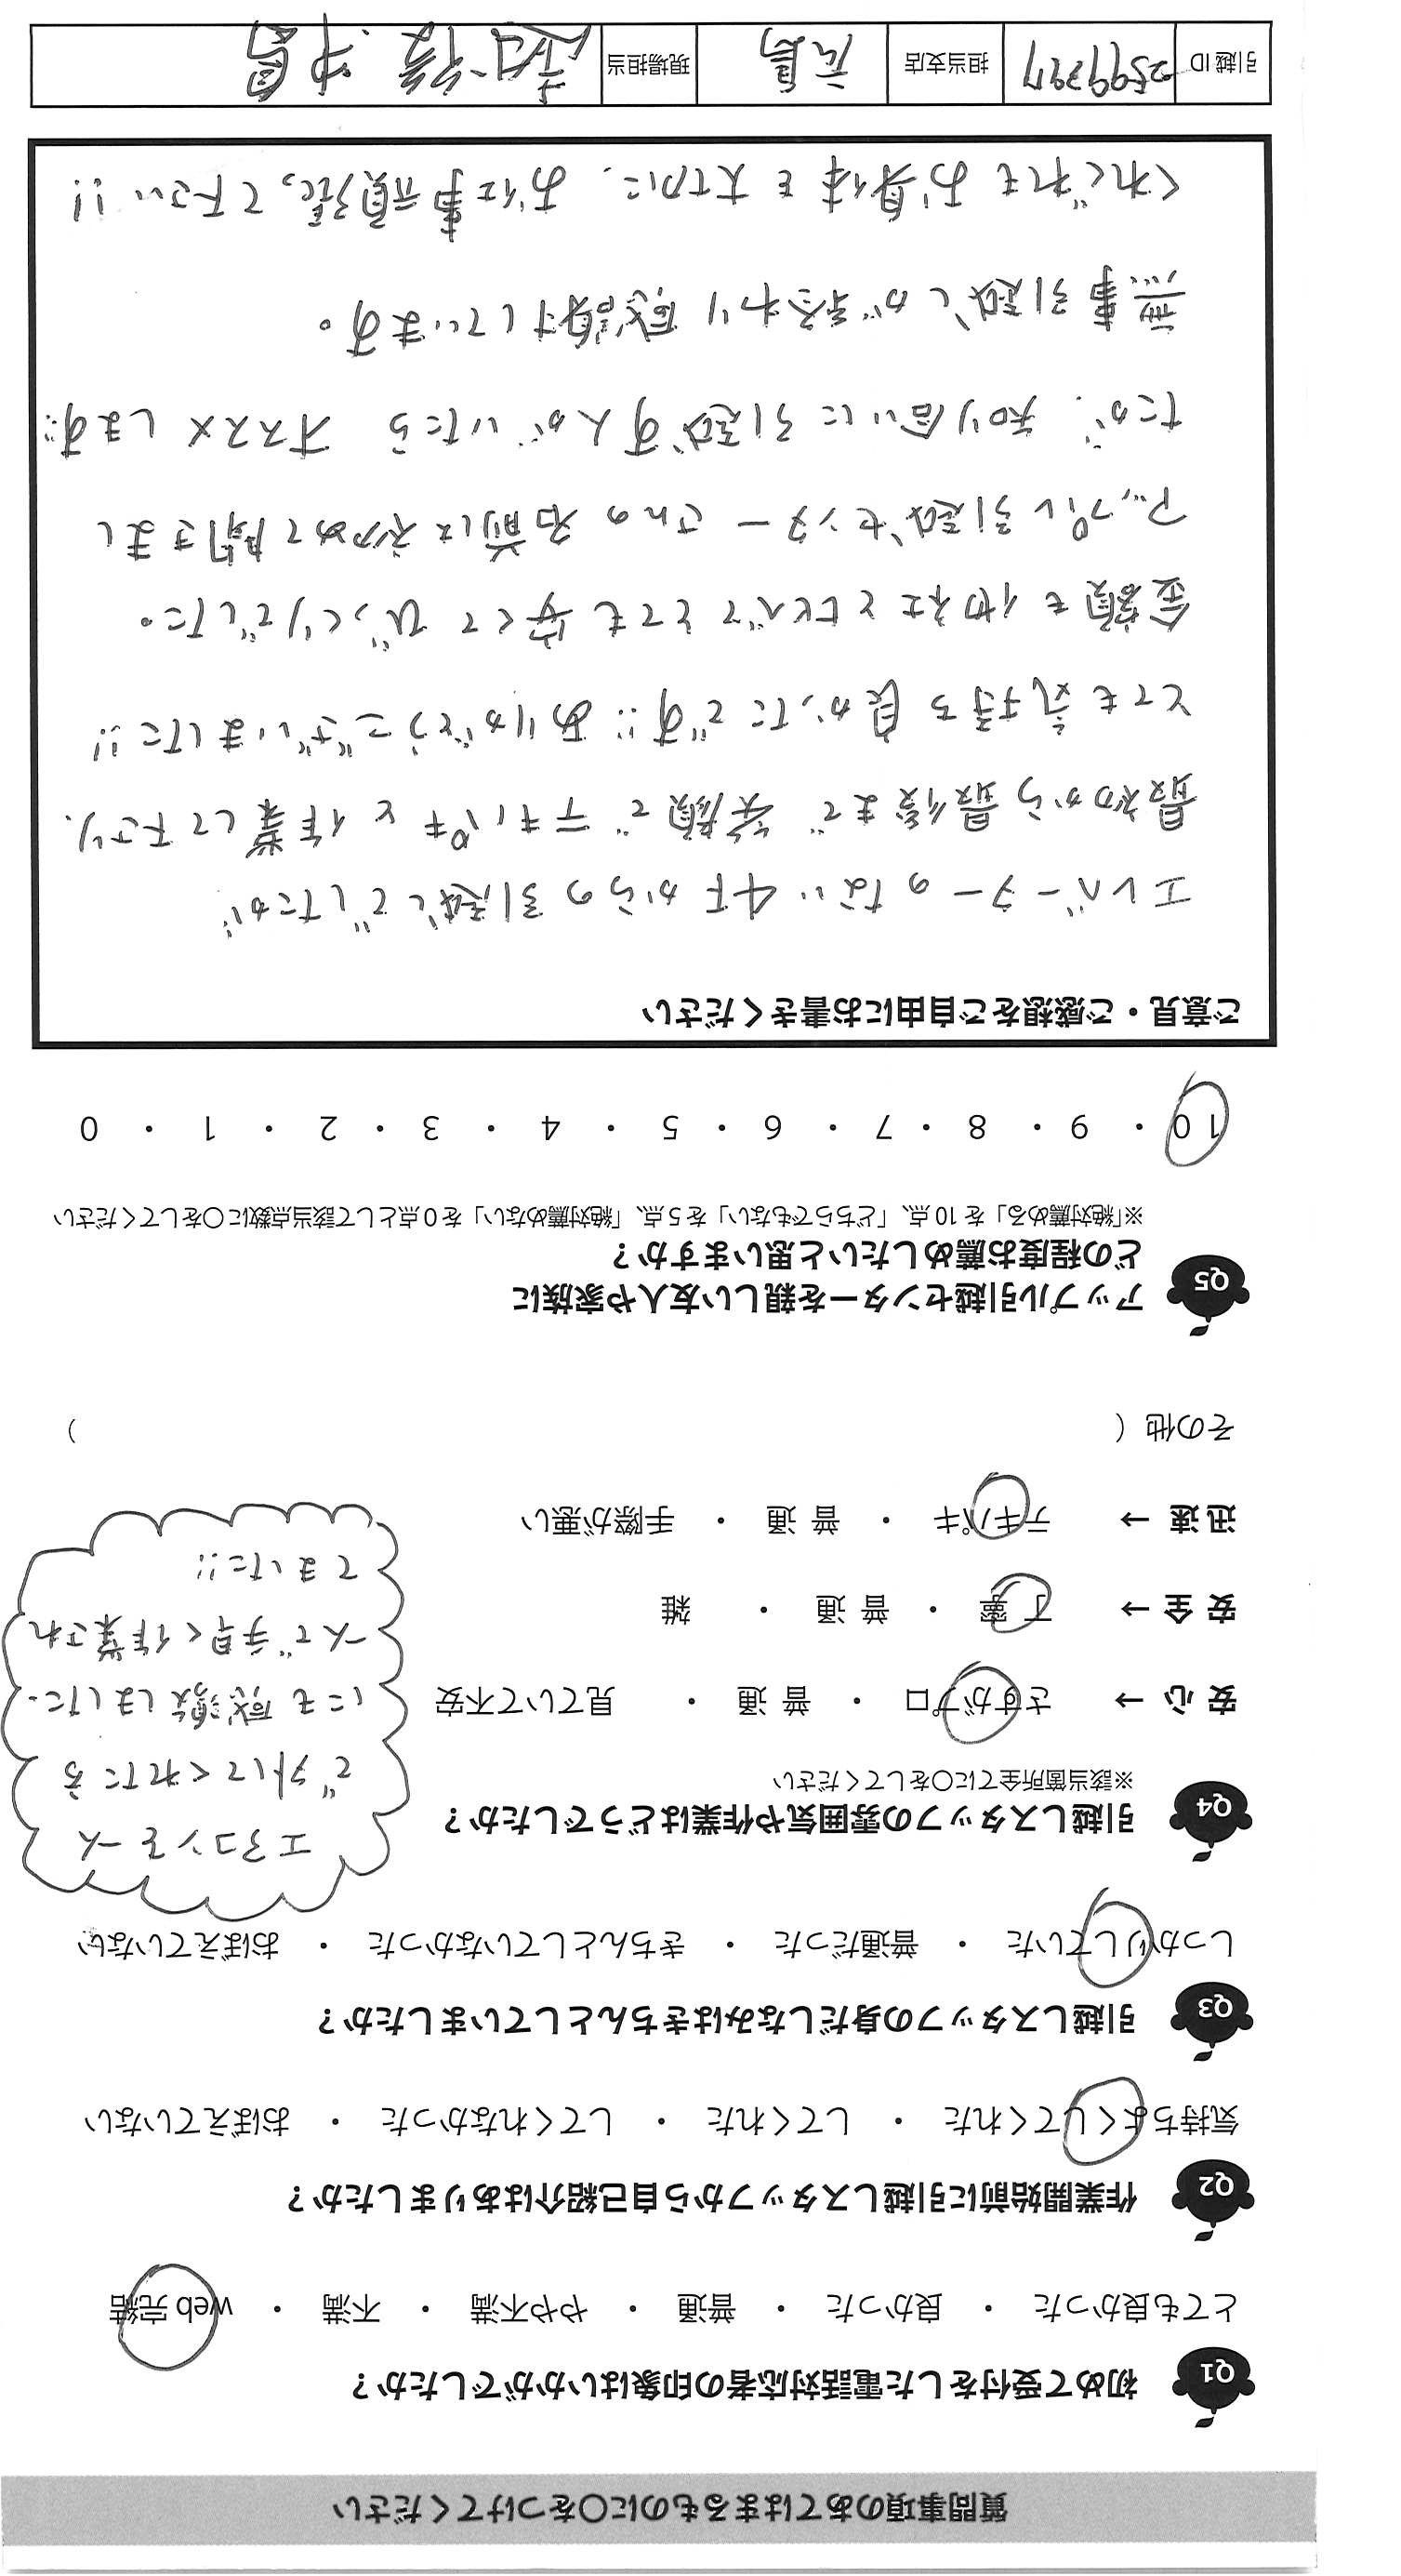 質問事項のあてはまるものに〇をつけてください
Q1 初めて受付をした電話対応者の印象はいかがでしたか？
とても良かった ・ 良かった ・ 普通 ・ やや不満 ・ 不満 ・ web 完結
Q2 作業開始前に引越しスタッフから自己紹介はありましたか？
気持ちよくしてくれた ・ してくれた ・ してくれなかった ・ おぼえていない
Q3 引越しスタッフの身だしなみはきちんとしていましたか？
しっかりしていた ・ 普通だった ・ きちんとしていなかった ・ おぼえていない
Q4 引越しスタッフの雰囲気や作業はどうでしたか？
※該当箇所全てに〇をしてください
安心 → さすがプロ ・ 普通 ・ 見ていて不安
安全 → 丁寧 ・ 普通 ・ 雑
迅速 → テキパキ ・ 普通 ・ 手際が悪い
その他（ ）
エアコンを一人
で外してくれたき
にも感激しました
一人で手早く作業され
てました!!
Q5 アップル引越センターを親しい友人や家族に
どの程度お薦めしたいと思いますか？
※「絶対薦める」を 10 点、「どちらでもない」を 5 点、「絶対薦めない」を 0 点として該当点数に〇をしてください
10 ・ 9 ・ 8 ・ 7 ・ 6 ・ 5 ・ 4 ・ 3 ・ 2 ・ 1 ・ 0
ご意見・ご感想をご自由にお書きください
エレベーターのない4Fからの引越しでしたが
最初から最後まで笑顔でテキパキと作業して下さり、
とても気持ち良かったです!!ありがとうございました!!
金額も他社と比べてとても安くてびっくりでした。
アップル引越センターさんの名前は初めて聞きまし
たが、知り合いに引越す人がいたらオススメします!!
無事引越しが終わり感謝しています。
くれぐれもお身体を大切に、お仕事頑張って下さい!!
引越 ID 担当支店 広島 現場担当